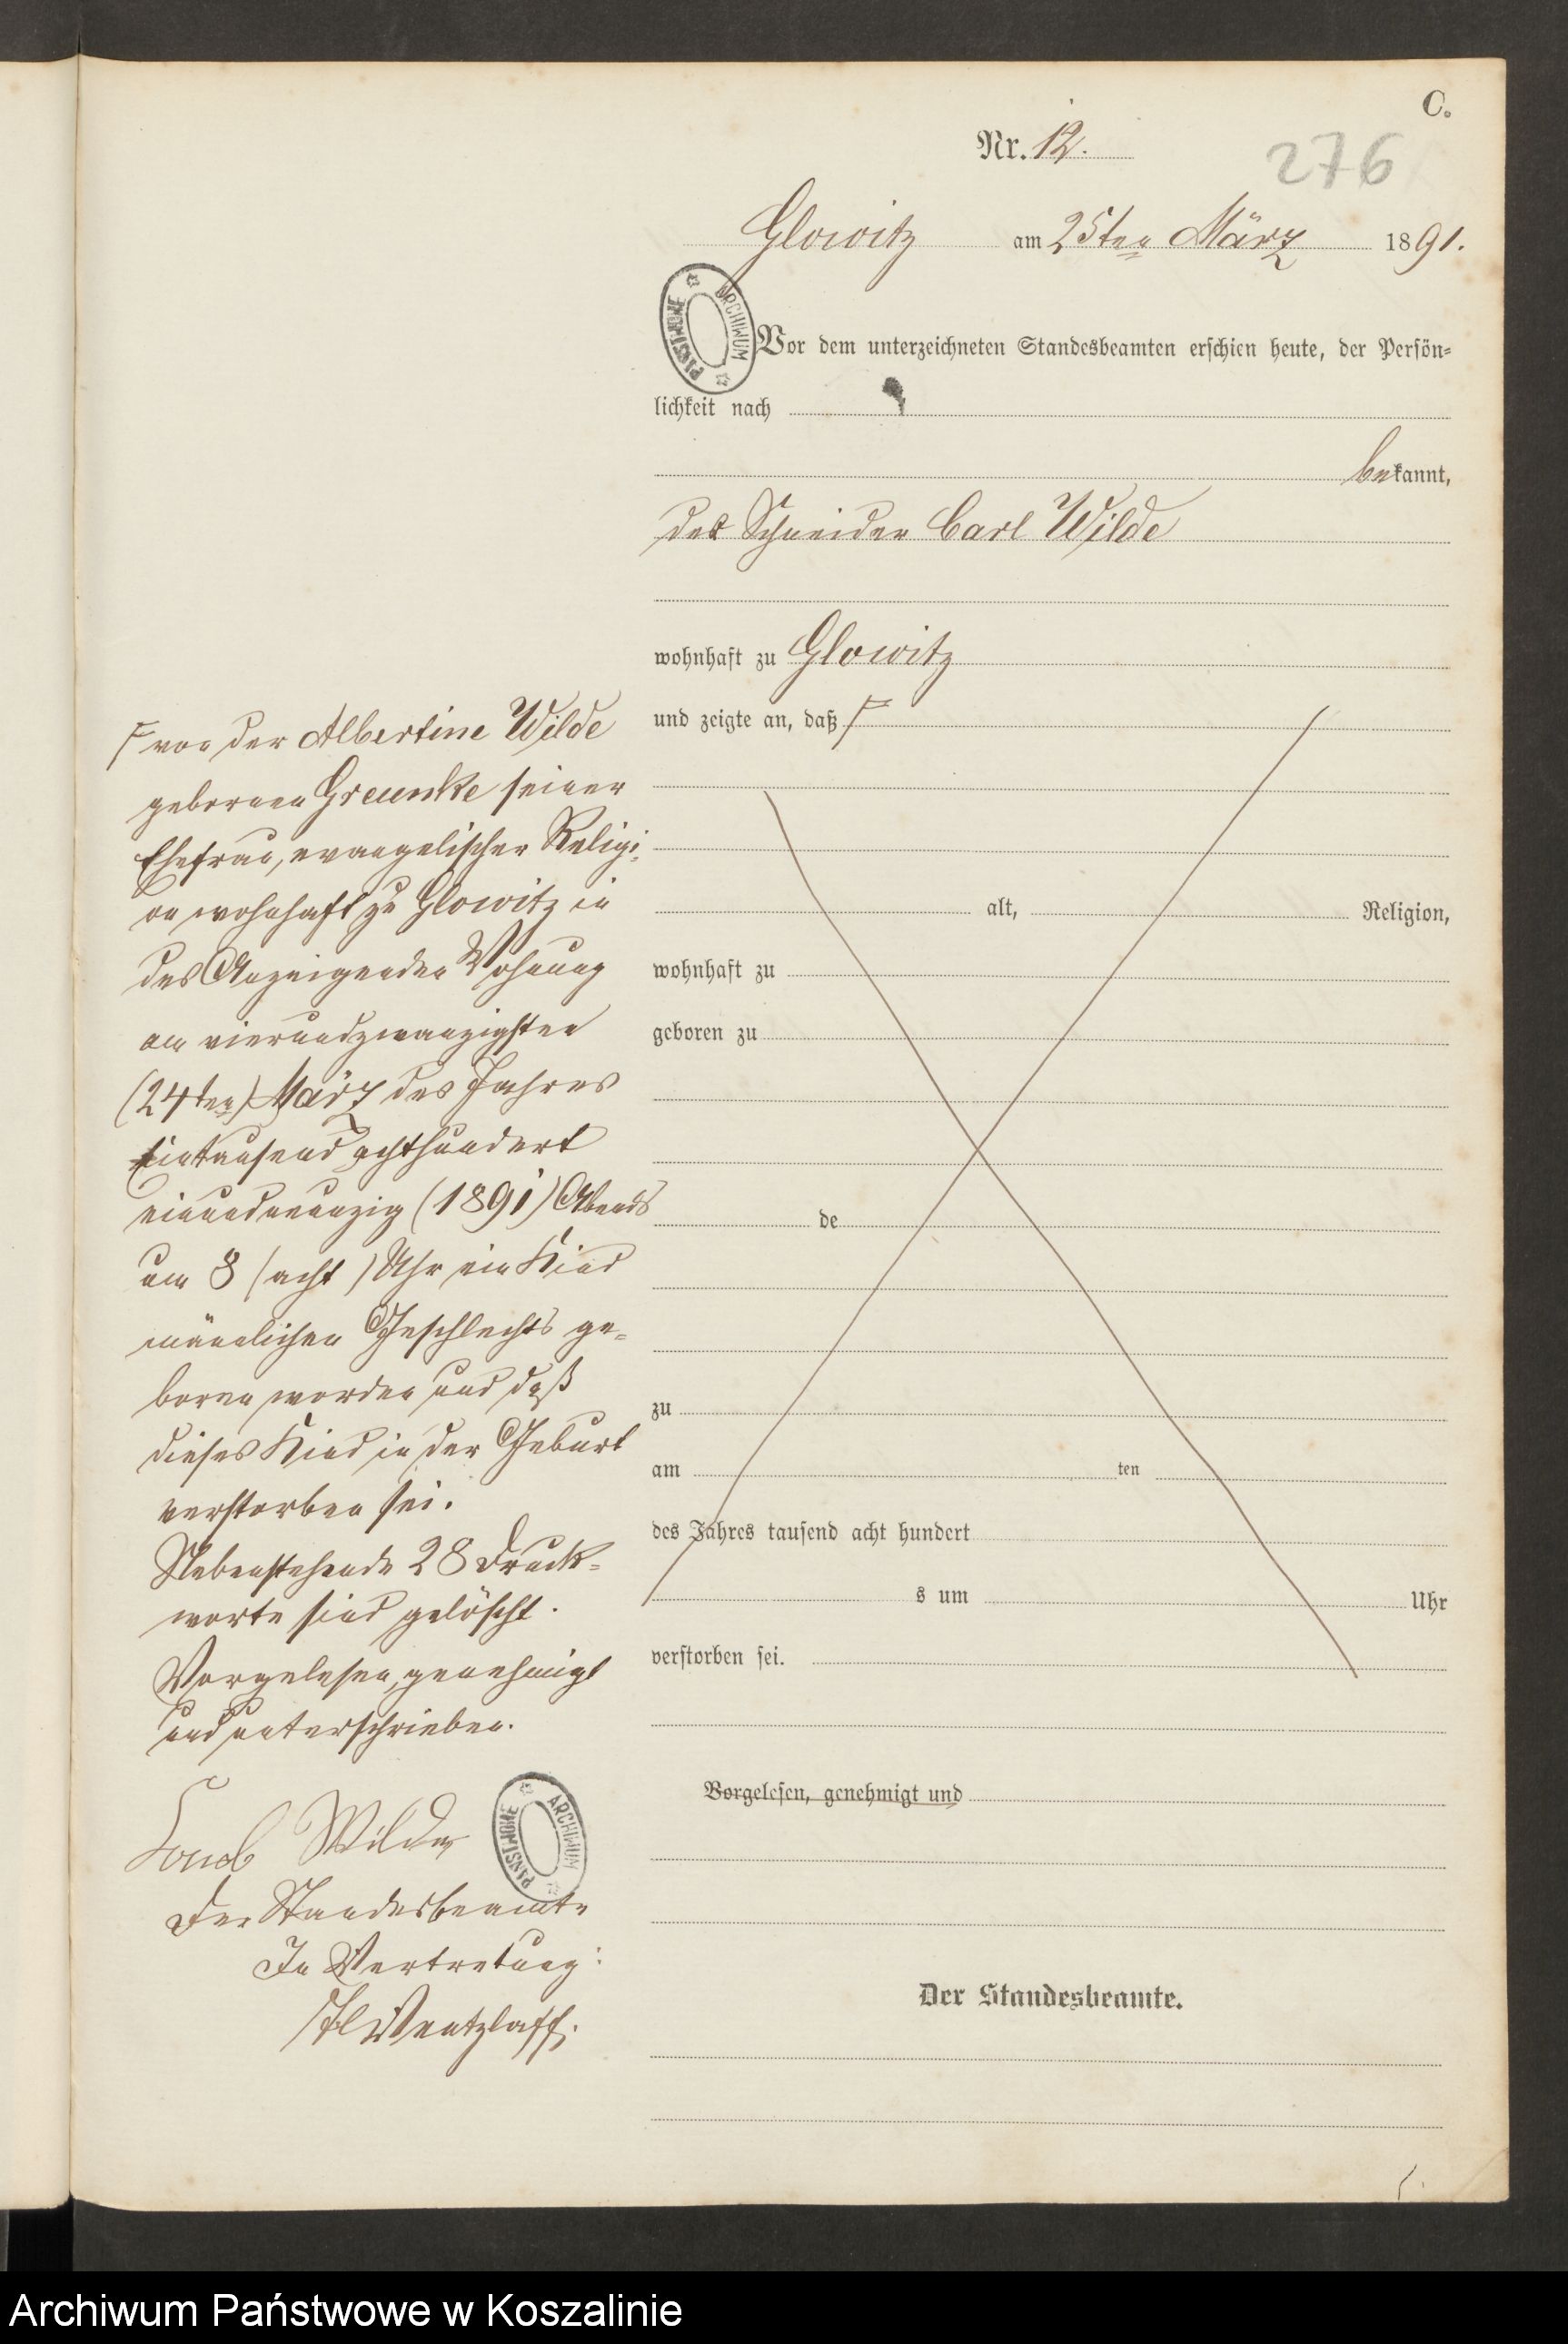 C.
Nr. 12.
276
Glowitz am 25ten März 1891.
ARCHIWUM PAŃSTWOWE
Vor dem unterzeichneten Standesbeamten erschien heute, der Persön-
lichkeit nach
bekannt,
der Schneider Carl Wilde
wohnhaft zu Glowitz
und zeigte an, daß
alt, Religion,
wohnhaft zu
geboren zu
de
zu
am ten
des Jahres tausend acht hundert
s um Uhr
verstorben sei.
Vorgelesen, genehmigt und
Der Standesbeamte.
von der Albertine Wilde
gebornen Greunke seiner
Ehefrau, evangelischer Religi-
on wohnhaft zu Glowitz in
des Anzeigenden Wohnung
am vierundzwanzigsten
(24ten) März des Jahres
Eintausend achthundert
einundneunzig (1891) Abends
um 8 (acht) Uhr ein Kind
männlichen Geschlechts ge-
boren worden und daß
dieses Kind in der Geburt
verstorben sei.
Nebenstehende 28 Druck-
worte sind gelöscht.
Vorgelesen, genehmigt
und unterschrieben.
Wilde
ARCHIWUM PAŃSTWOWE
Der Standesbeamte
In Vertretung:
Wentzlaff.
Archiwum Państwowe w Koszalinie